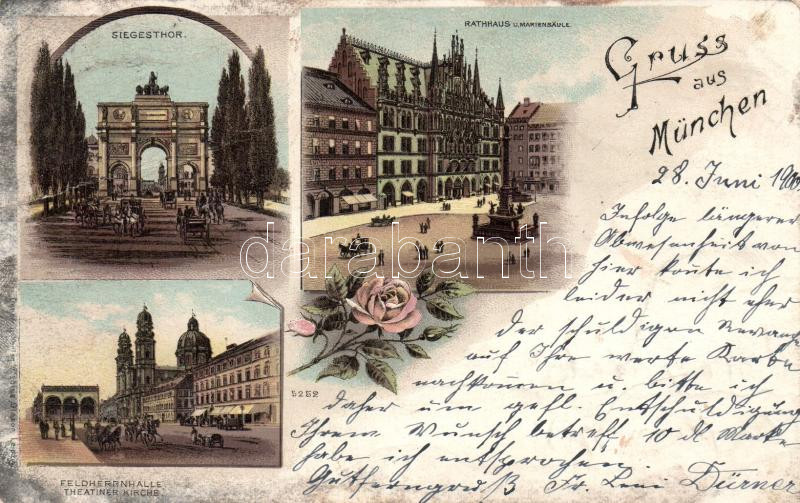 SIEGESTHOR.
RATHHAUS U. MARIENSÄULE.
Gruss
aus
München
28. Juni 1900
Infolge längerer
Abwesenheit von
hier konte ich
leider nicht eher
der schuldigen Revange
auf Ihre werte Karte
nachkomen u. bitte ich
daher um gefl. Entschuldigung
Ihrem Wunsch betreff 10 dl Marke
habe ich entsprochen.
Gutferngruß Fr. Leni Dürner
5252
FELDHERRNHALLE
THEATINER KIRCHE
darabanth.com